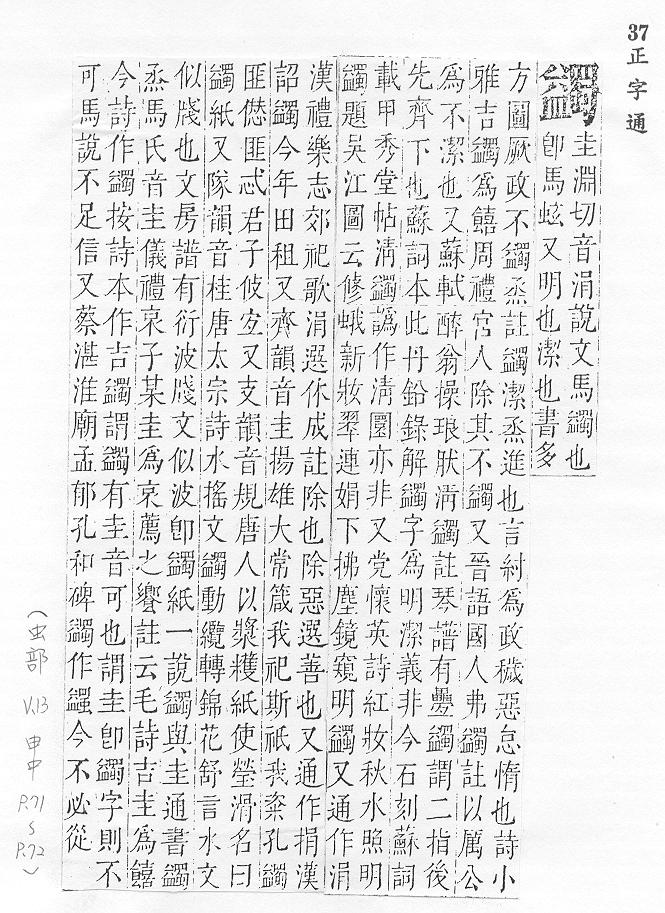 37正字通
蠲
圭淵切音涓說文馬蠲也
卽馬蚿又明也潔也書多
方圖厥政不蠲烝註蠲潔烝進也言紂爲政穢惡怠惰也詩小
雅吉蠲爲饎周禮宮人除其不蠲又晉語國人弗蠲註以厲公
爲不潔也又蘇軾醉翁操琅然淸蠲註琴譜有疊蠲謂二指後
先齊下也蘇詞本此丹鉛錄解蠲字爲明潔義非今石刻蘇詞
載甲秀堂帖淸蠲譌作淸圜亦非又党懷英詩紅妝秋水照明
蠲題吳江圖云修蛾新妝翠連娟下拂塵鏡窺明蠲又通作涓
漢禮樂志郊祀歌涓選休成註除也除惡選善也又通作捐漢
詔蠲今年田租又齊韻音圭揚雄大常箴我祀斯祇我粢孔蠲
匪愆匪忒君子攸宜又支韻音規唐人以漿粶紙使瑩滑名曰
蠲紙又隊韻音桂唐太宗詩水搖文蠲動纜轉錦花舒言水文
似牋也文房譜有衍波牋文似波卽蠲紙一說蠲與圭通書蠲
烝馬氏音圭儀禮哀子某圭爲哀薦之饗註云毛詩吉圭爲饎
今詩作蠲按詩本作吉蠲謂蠲有圭音可也謂圭卽蠲字則不
可馬說不足信又蔡湛淮廟孟郁孔和碑蠲作𧖅今不必從
（虫部 V.13 申中 P.71 ~ P.72）